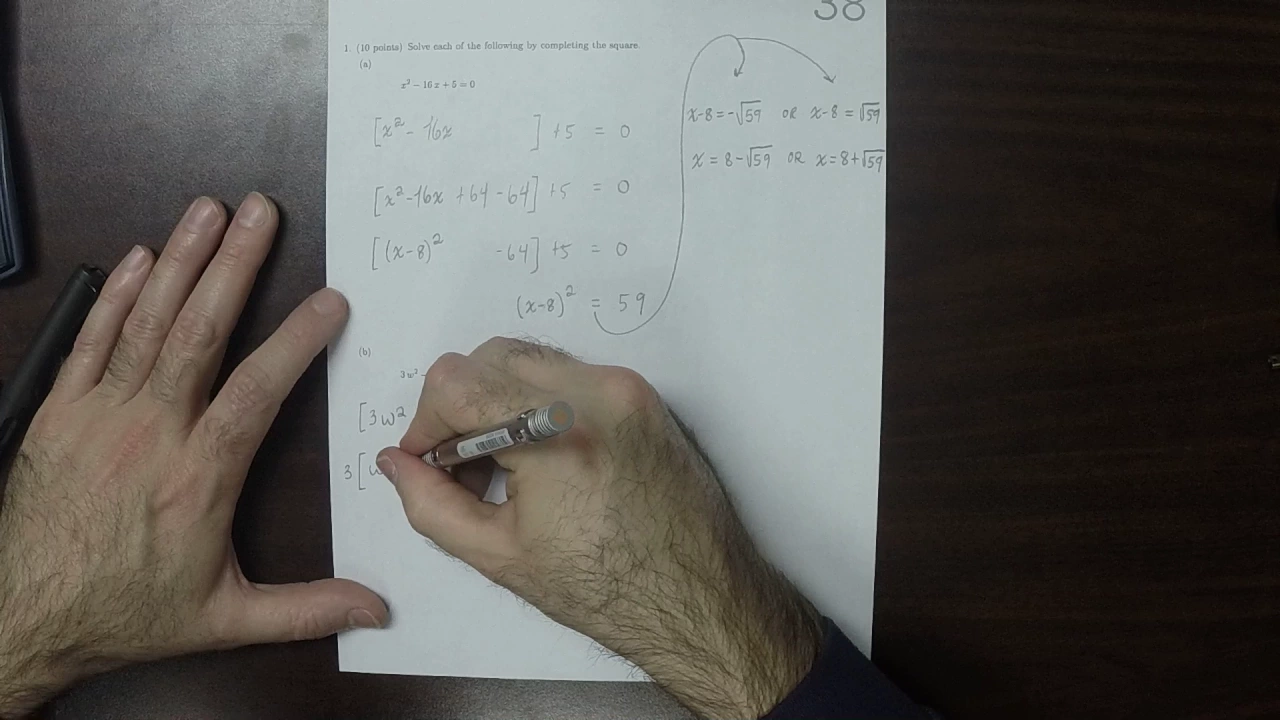 38
1. (10 points) Solve each of the following by completing the square.
(a)
x² − 16x + 5 = 0
[x² − 16x ] + 5 = 0
[x² − 16x + 64 − 64] + 5 = 0
[(x−8)² − 64] + 5 = 0
(x−8)² = 59
x−8 = −√59 OR x−8 = √59
x = 8−√59 OR x = 8+√59
(b)
3w² −
[3w²
3[w